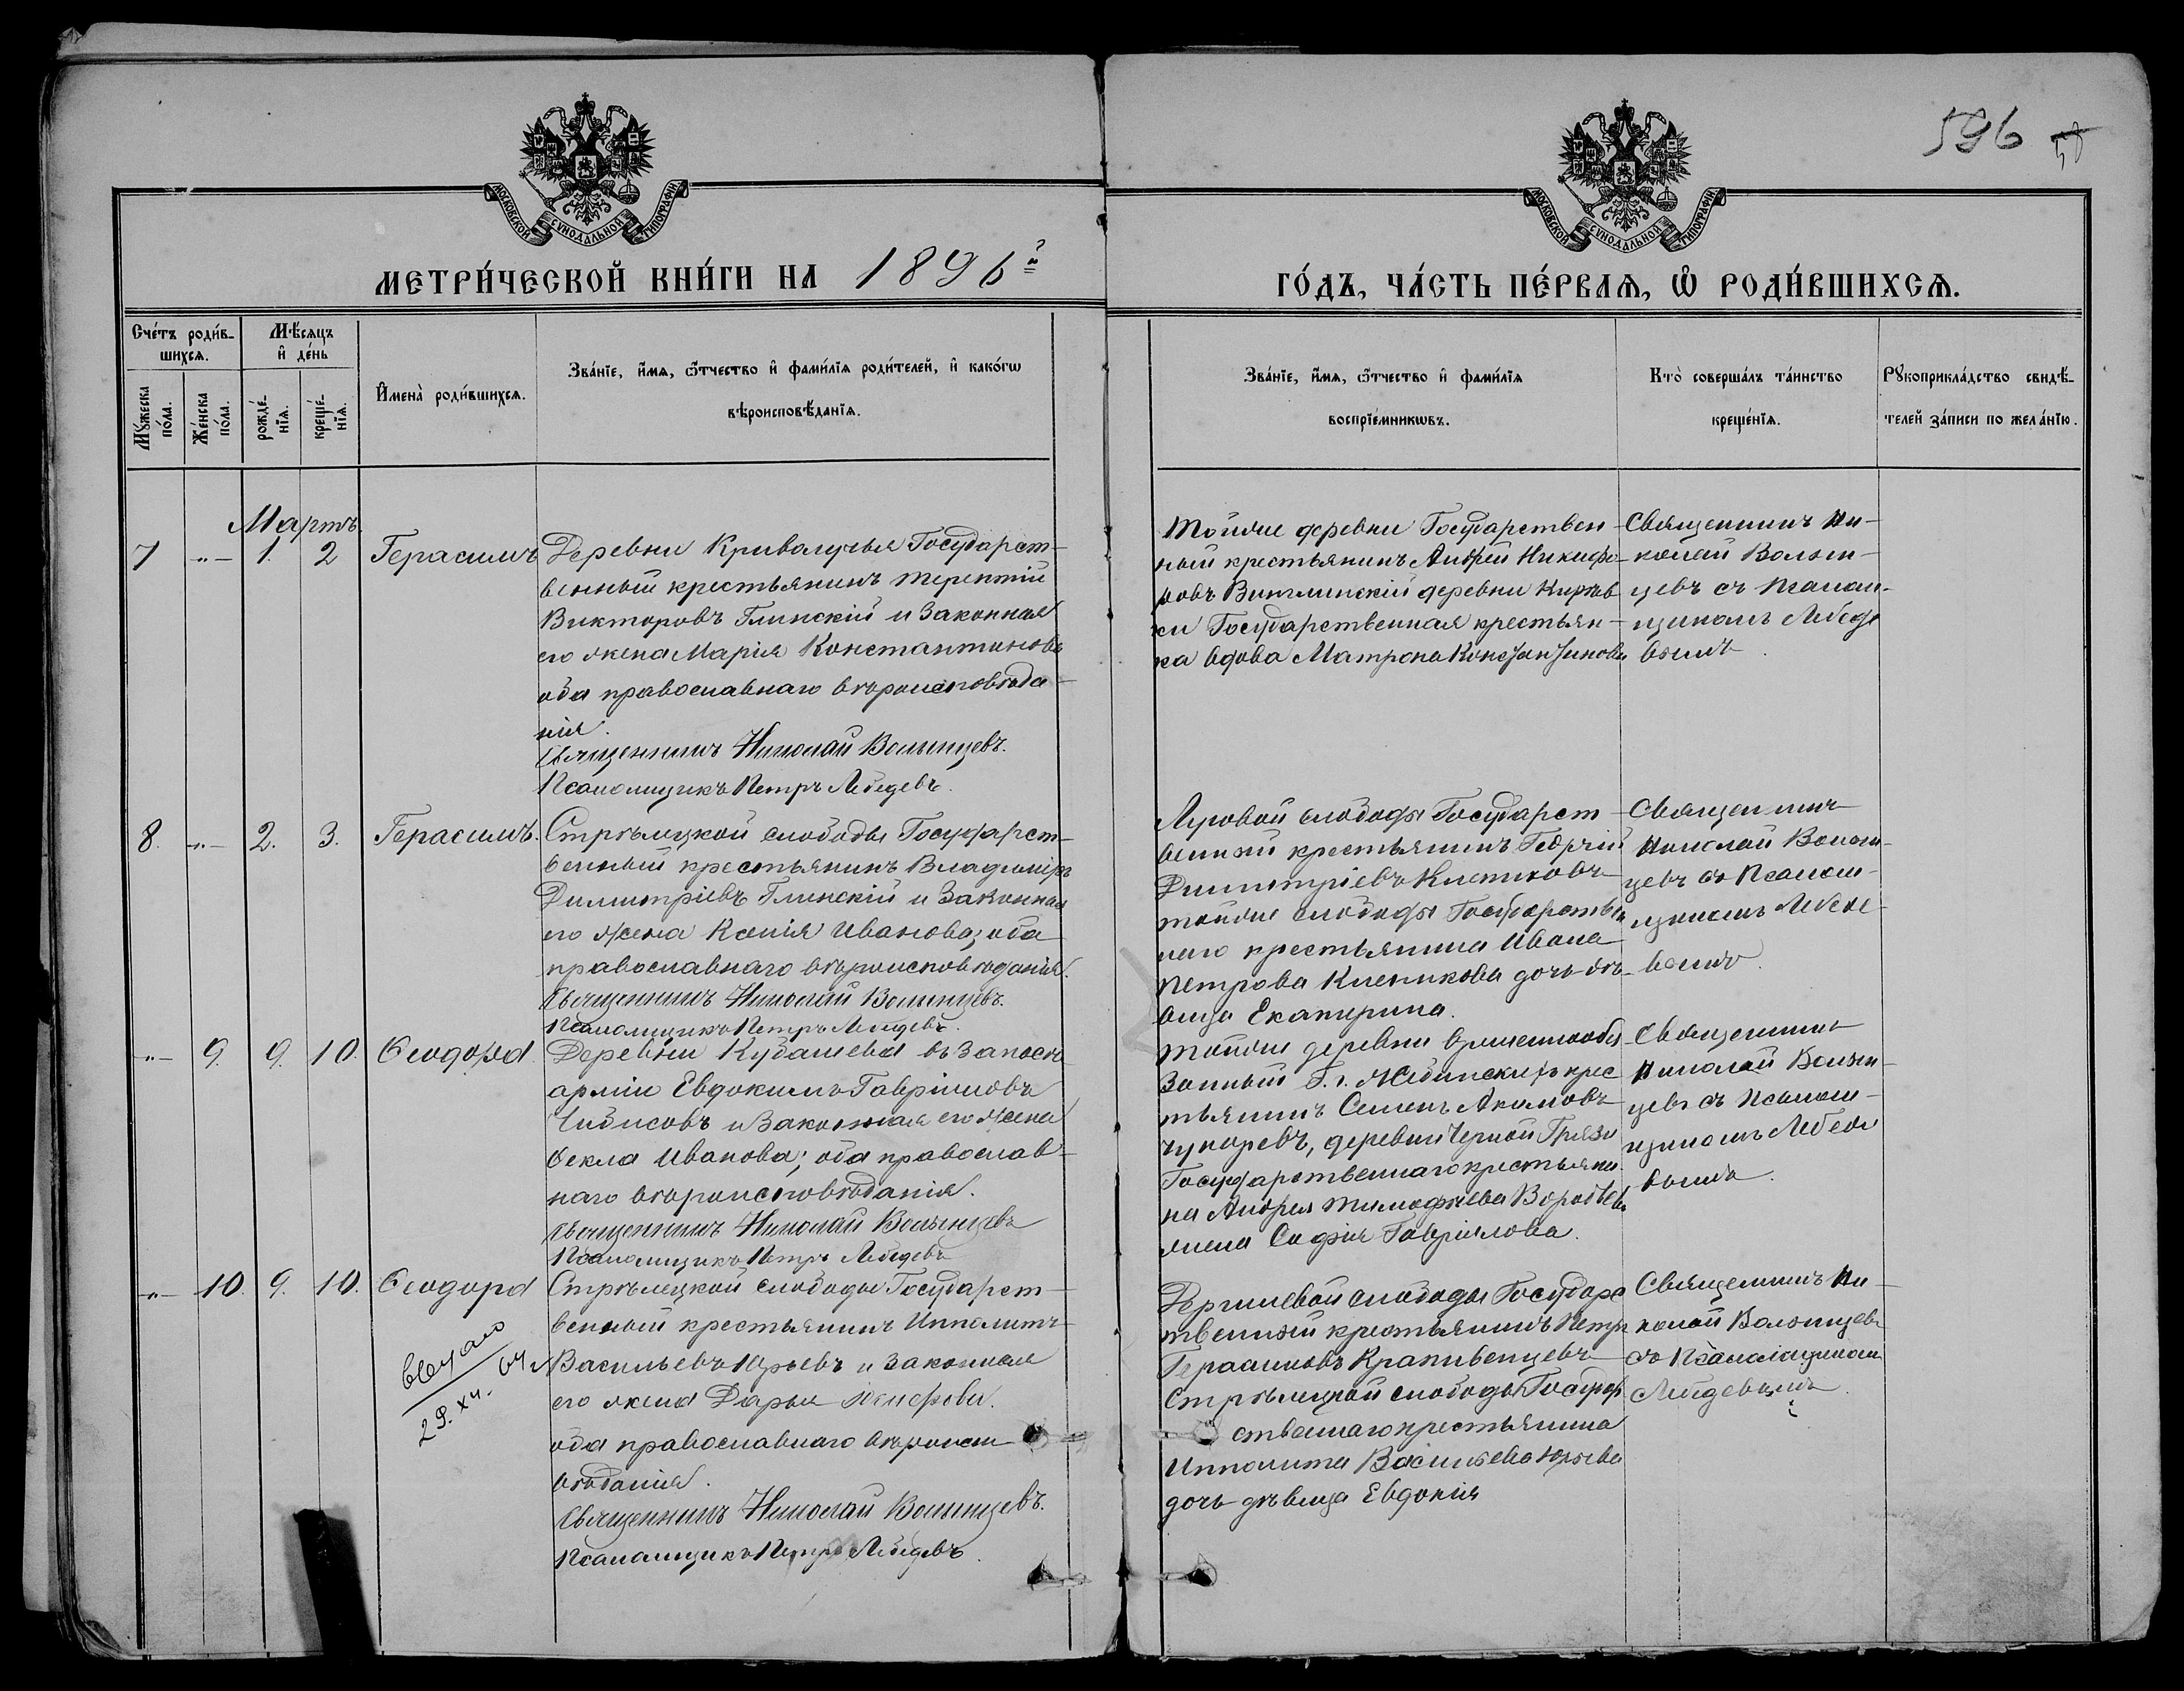 596
МОСКОВСКОЙ СѴНОДАЛЬНОЙ ТИПОГРАФІИ
МОСКОВСКОЙ СѴНОДАЛЬНОЙ ТИПОГРАФІИ
МЕТРИ́ЧЕСКОЙ КНИ́ГИ НА 1896 й
ГО́ДЪ, ЧА́СТЬ ПЕ́РВАЯ, Ѡ҆ РОДИ́ВШИХСЯ.
Сче́тъ роди́в-
шихся.
Мꙋ́жеска по́ла.
Же́нска по́ла.
Мѣ́сяцъ
и҆ де́нь
рожде́-
нія.
креще́-
нія.
И҆мена̀ роди́вшихся.
Зва́ніе, и҆́мя, ѻ҆́тчество и҆ фами́лія роди́телей, и҆ како́гѡ
вѣроисповѣ́данія.
Зва́ніе, и҆́мя, ѻ҆́тчество и҆ фами́лія
воспріе́мникѡвъ.
Кто̀ соверша́лъ та́инство
креще́нія.
Рꙋкоприкла́дство свидѣ́-
телей за́писи по жела́нію.
Мартъ.
7 -"- 1. 2 Герасимъ
Деревни Криволучья Государст-
венный крестьянинъ Терентій
Викторовъ Глинскій и законная
его жена Марія Константинова
оба православнаго вѣроисповѣда-
нія.
Священникъ Николай Волынцевъ.
Псаломщикъ Петръ Лебедевъ.
Тойже деревни Государствен-
ный крестьянинъ Андрей Никифо-
ровъ деревни
ки Государственная крестьян-
ка вдова Матрона Константинова
Священникъ Ни-
колай Волын-
цевъ съ Псалом-
щикомъ Лебеде
вымъ.
8. -"- 2. 3. Герасимъ.
Стрѣлецкой слободы Государст-
венный крестьянинъ Владиміръ
Димитріевъ Глинскій и законная
его жена Ксенія Иванова; оба
православнаго вѣроисповѣданія.
Священникъ Николай Волынцевъ.
Псаломщикъ Петръ Лебедевъ.
Луговой слободы Государст-
венный крестьянинъ Георгій
Димитріевъ Клепиковъ
тойже слободы Государствен
наго крестьянина Ивана
Петрова Клепикова дочь дѣ-
вица Екатерина.
Священникъ
Николай Волын-
цевъ съ Псалом-
щикомъ Лебеде-
вымъ.
-"- 9. 9. 10. Ѳеодора
Деревни Кубашева въ запасѣ
арміи Евдокимъ Гавріиловъ
Чибисовъ и законная его жена
Ѳекла Иванова; оба православ-
наго вѣроисповѣданія.
Священникъ Николай Волынцевъ
Псаломщикъ Петръ Лебедевъ
Тойже деревни временнообя
занный Г. г. крес
тьянинъ Семенъ Акимовъ
деревни Черной Грязи
Государственнаго крестьяни
на Андрея Тимофѣева Воробьева
жена Софія Гавріилова.
Священникъ
Николай Волын-
цевъ съ Псалом-
щикомъ Лебеде
вымъ.
-"- 10. 9. 10. Ѳеодора
Стрѣлецкой слободы Государст-
венный крестьянинъ Ипполитъ
Васильевъ Юрьевъ и законная
его жена Дарья
оба православнаго вѣроиспо
вѣданія.
Священникъ Николай Волынцевъ.
Псаломщикъ Петръ Лебедевъ.
слободы Государс
твенный крестьянинъ Петръ
Герасимовъ Крапивенцевъ
Стрѣлецкой слободы Государ
ственнаго крестьянина
Ипполита Васильева Юрьева
дочь дѣвица Евдокія
Священникъ Ни-
колай Волынцевъ
съ Псаломщикомъ
Лебедевымъ.